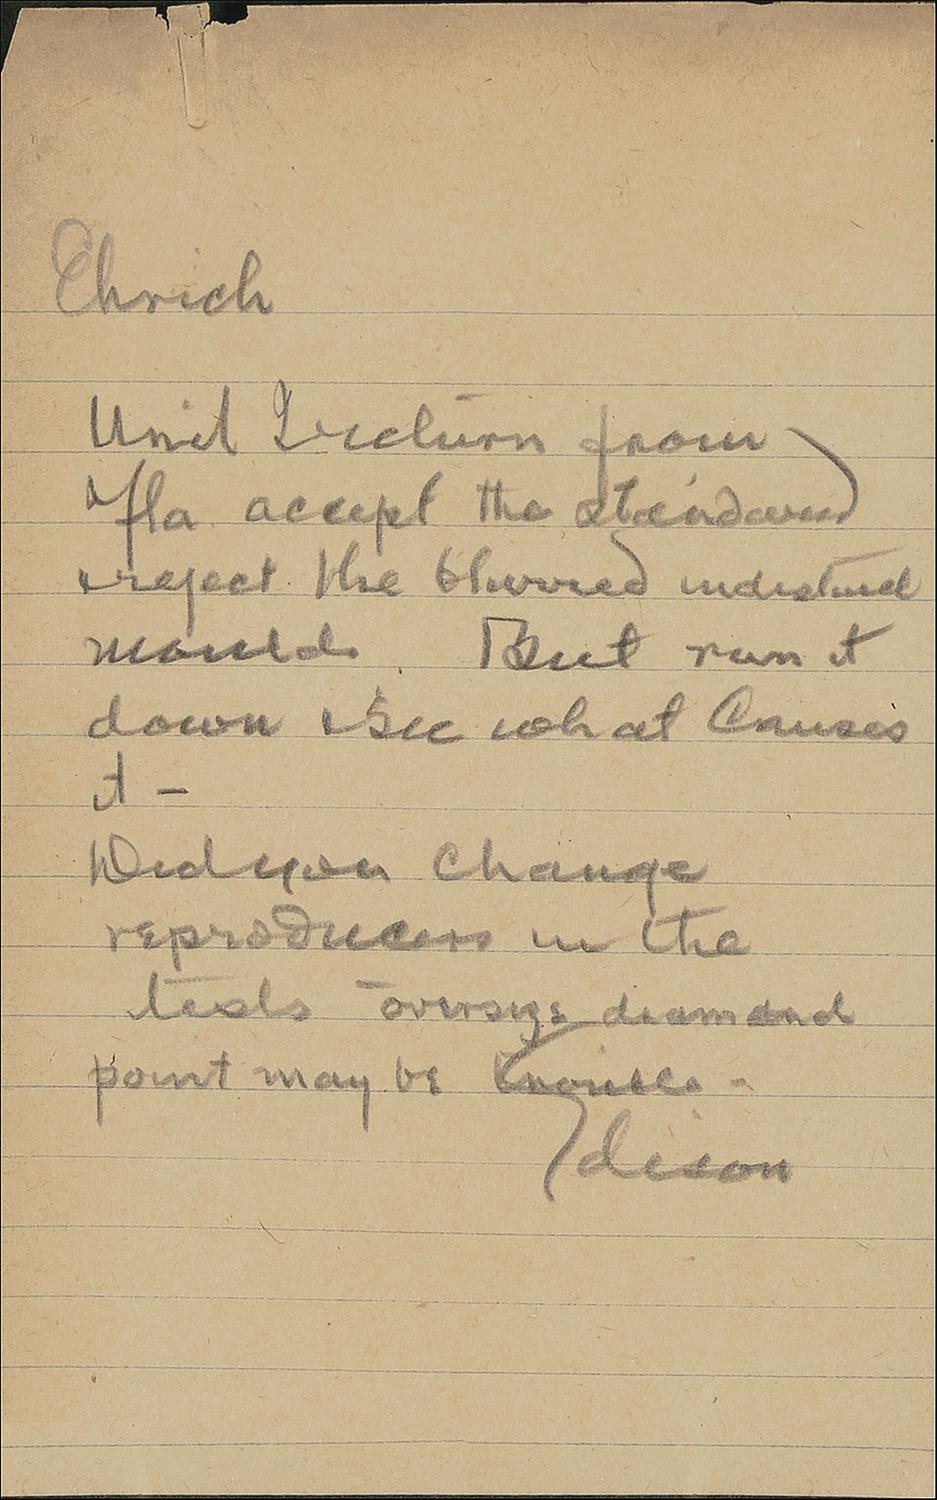 Ehrich
Until I return from
Fla accept the standard
& reject the blurred indistinct
moulds. But run it
down & see what causes
it —
Did you change
reproducers in the
tests - oversize diamond
point may be trouble -
Edison